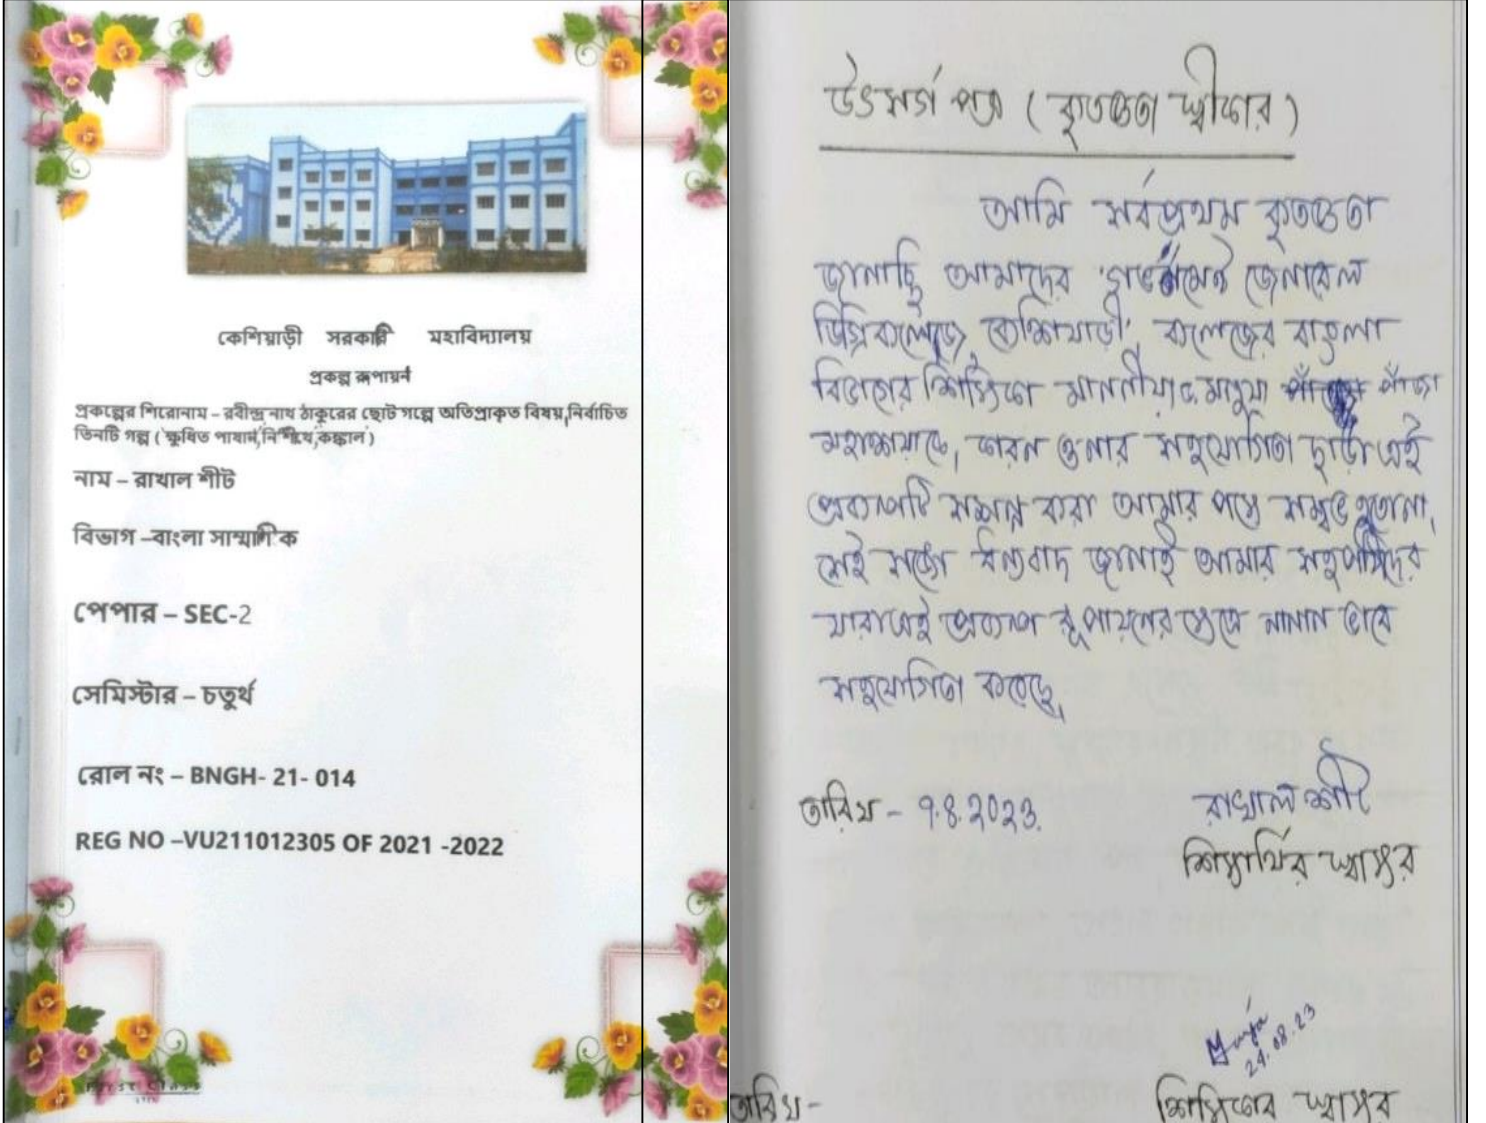 কেশিয়াড়ী সরকারী মহাবিদ্যালয়
প্রকল্প রূপায়ন
প্রকল্পের শিরোনাম – রবীন্দ্র নাথ ঠাকুরের ছোট গল্পে অতিপ্রাকৃত বিষয়,নির্বাচিত
তিনটি গল্প ( 'ক্ষুধিত পাষাণ','নিশীথে','কঙ্কাল')
নাম – রাখাল শীট
বিভাগ –বাংলা সাম্মানিক
পেপার – SEC-2
সেমিস্টার – চতুর্থ
রোল নং – BNGH- 21- 014
REG NO –VU211012305 OF 2021 -2022
উৎসর্গ পত্র ( কৃতজ্ঞতা স্বীকার )
আমি সর্বপ্রথম কৃতজ্ঞতা
জানাচ্ছি আমাদের 'গভর্নমেন্ট জেনারেল
ডিগ্রি কলেজ, কেশিয়াড়ী' কলেজের বাংলা
বিভাগের শিক্ষিকা মাননীয়া ড. মঞ্জুষা পাঁজা
মহাশয়াকে, কারন ওনার সহযোগিতা ছাড়া এই
প্রকল্পটি সম্পন্ন করা আমার পক্ষে সম্ভব হতোনা,
সেই সঙ্গে ধন্যবাদ জানাই আমার সহপাঠীদের
যারা এই প্রকল্প রূপায়নের ক্ষেত্রে নানান ভাবে
সহযোগিতা করেছে,
তারিখ – ৭.৪.২০২৩. রাখাল শীট
শিক্ষার্থির স্বাক্ষর
24.08.23
তারিখ – শিক্ষিকার স্বাক্ষর